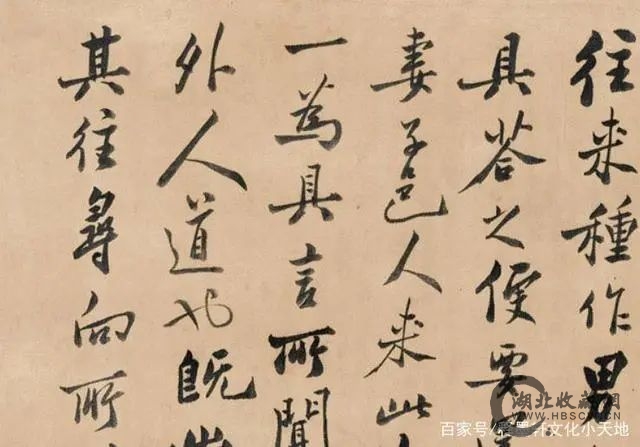 往来種作男
具荅之便要
妻子邑人来此
一為具言所聞
外人道也既出
其往尋向所
湖北收藏网
百家号/
文化小天地